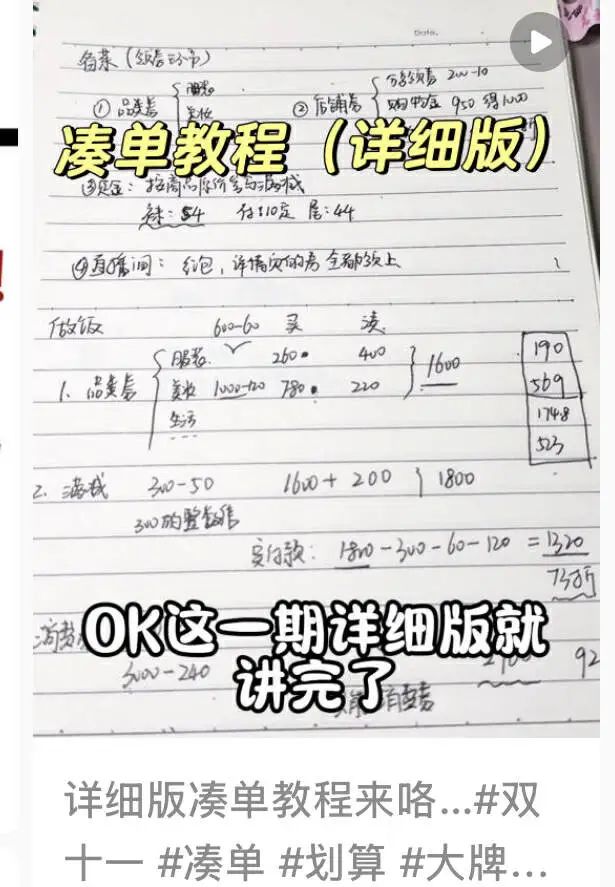 Date.
备菜(领券环节)
① 品类券 服装 美妆
② 店铺券 200-10
购物金 950得1000
凑单教程(详细版)
54 付:10定 尾:44
④直播间: 红包,详情页的券全部领上
做饭 600-60 买 凑
1. 品类券 服装 260 400
美妆 1000-120 780 220
生活
1600
190
569
1748
523
2. 满减 300-50 1600+200 1800
300的整数倍
实付款: 1800-300-60-120=1320
73折
OK这一期详细版就
讲完了
3000-240
92
详细版凑单教程来咯...#双
十一 #凑单 #划算 #大牌...